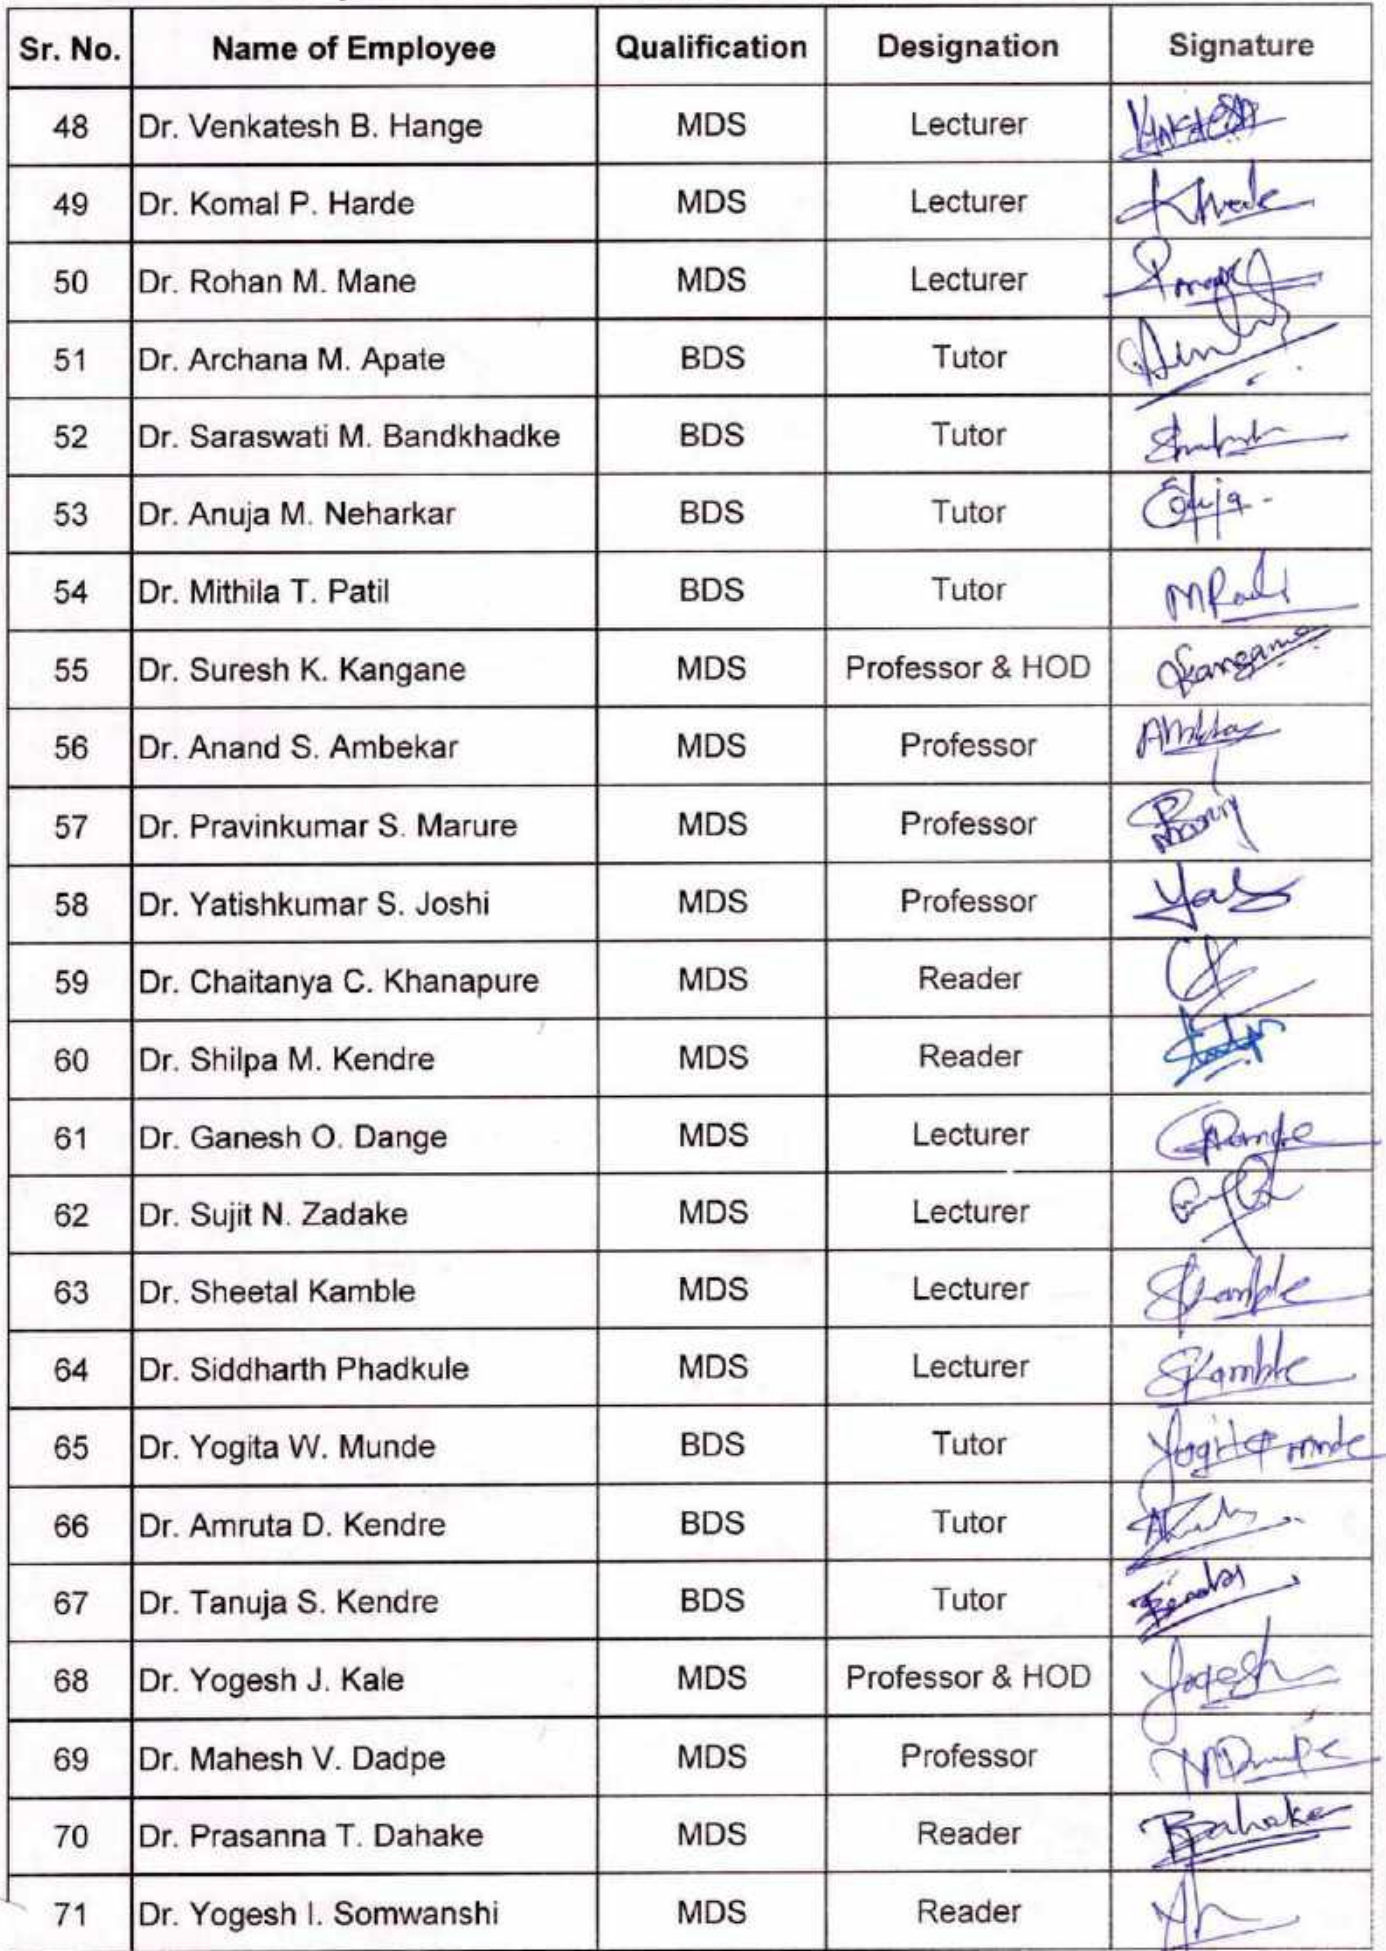 Sr. No. Name of Employee Qualification Designation Signature
48 Dr. Venkatesh B. Hange MDS Lecturer
49 Dr. Komal P. Harde MDS Lecturer
50 Dr. Rohan M. Mane MDS Lecturer
51 Dr. Archana M. Apate BDS Tutor
52 Dr. Saraswati M. Bandkhadke BDS Tutor
53 Dr. Anuja M. Neharkar BDS Tutor
54 Dr. Mithila T. Patil BDS Tutor
55 Dr. Suresh K. Kangane MDS Professor & HOD
56 Dr. Anand S. Ambekar MDS Professor
57 Dr. Pravinkumar S. Marure MDS Professor
58 Dr. Yatishkumar S. Joshi MDS Professor
59 Dr. Chaitanya C. Khanapure MDS Reader
60 Dr. Shilpa M. Kendre MDS Reader
61 Dr. Ganesh O. Dange MDS Lecturer
62 Dr. Sujit N. Zadake MDS Lecturer
63 Dr. Sheetal Kamble MDS Lecturer Skamble
64 Dr. Siddharth Phadkule MDS Lecturer Skamble
65 Dr. Yogita W. Munde BDS Tutor Yogita munde
66 Dr. Amruta D. Kendre BDS Tutor
67 Dr. Tanuja S. Kendre BDS Tutor
68 Dr. Yogesh J. Kale MDS Professor & HOD Yogesh
69 Dr. Mahesh V. Dadpe MDS Professor
70 Dr. Prasanna T. Dahake MDS Reader
71 Dr. Yogesh I. Somwanshi MDS Reader